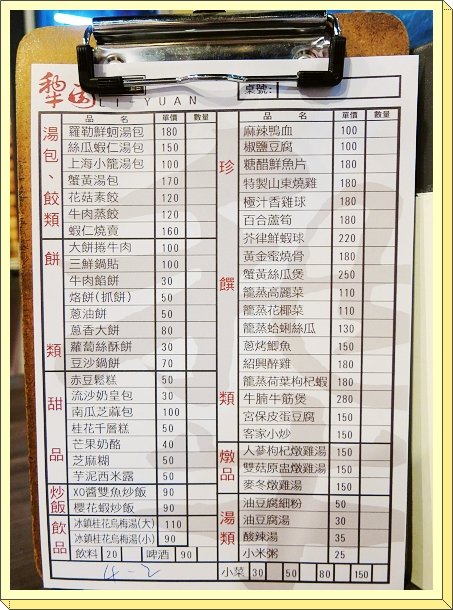 犂園 LI-YUAN
桌號:
品名 單價 數量
湯包、餃類
羅勒鮮蚵湯包 180
絲瓜蝦仁湯包 150
上海小籠湯包 100
蟹黃湯包 170
花菇素餃 120
牛肉蒸餃 120
蝦仁燒賣 160
餅類
大餅捲牛肉 100
三鮮鍋貼 100
牛肉餡餅 30
烙餅(抓餅) 50
蔥油餅 50
蔥香大餅 80
蘿蔔絲酥餅 30
豆沙鍋餅 70
甜品
赤豆鬆糕 50
流沙奶皇包 30
南瓜芝蔴包 100
桂花千層糕 50
芒果奶酪 40
芝麻糊 50
芋泥西米露 50
炒飯
XO醬雙魚炒飯 90
櫻花蝦炒飯 90
飲品
冰鎮桂花烏梅湯(大) 110
冰鎮桂花烏梅湯(小) 90
飲料 20 啤酒 90
品名 單價 數量
珍饌類
麻辣鴨血 100
椒鹽豆腐 100
糖醋鮮魚片 180
特製山東燒雞 180
極汁香雞球 180
百合蘆筍 180
芥律鮮蝦球 220
黃金蜜燒骨 180
蟹黃絲瓜煲 250
籠蒸高麗菜 110
籠蒸花椰菜 110
籠蒸蛤蜊絲瓜 130
蔥烤鯽魚 150
紹興醉雞 180
籠蒸荷葉枸杞蝦 180
牛腩牛筋煲 280
宮保皮蛋豆腐 150
客家小炒 150
燉品
人蔘枸杞燉雞湯 150
雙菇原盅燉雞湯 150
麥冬燉雞湯 150
湯類
油豆腐細粉 50
油豆腐湯 30
酸辣湯 35
小米粥 25
小菜 30 50 80 150